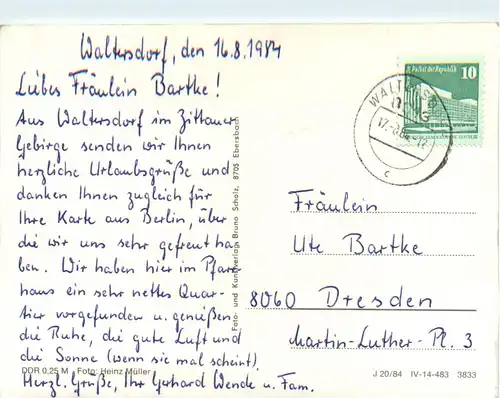 Waltersdorf, den 16.8.1984
Liebes Fräulein Bartke!
Aus Waltersdorf im Zittauer
Gebirge senden wir Ihnen
herzliche Urlaubsgrüße und
danken Ihnen zugleich für
Ihre Karte aus Berlin, über
die wir uns sehr gefreut ha
ben. Wir haben hier im Pfarr
haus ein sehr nettes Quar-
tier vorgefunden u. genießen
die Ruhe, die gute Luft und
die Sonne (wenn sie mal scheint).
Herzl. Grüße, Ihr Gerhard Wende u. Fam.
DDR 0,25 M Foto: Heinz Müller
Foto- und Kunstverlag Bruno Scholz, 8705 Ebersbach
Palast der Republik
10
WALTERSD
17.-8.84-12
c
Fräulein
Ute Bartke
8060 Dresden
Martin-Luther-Pl. 3
J 20/84 IV-14-483 3833